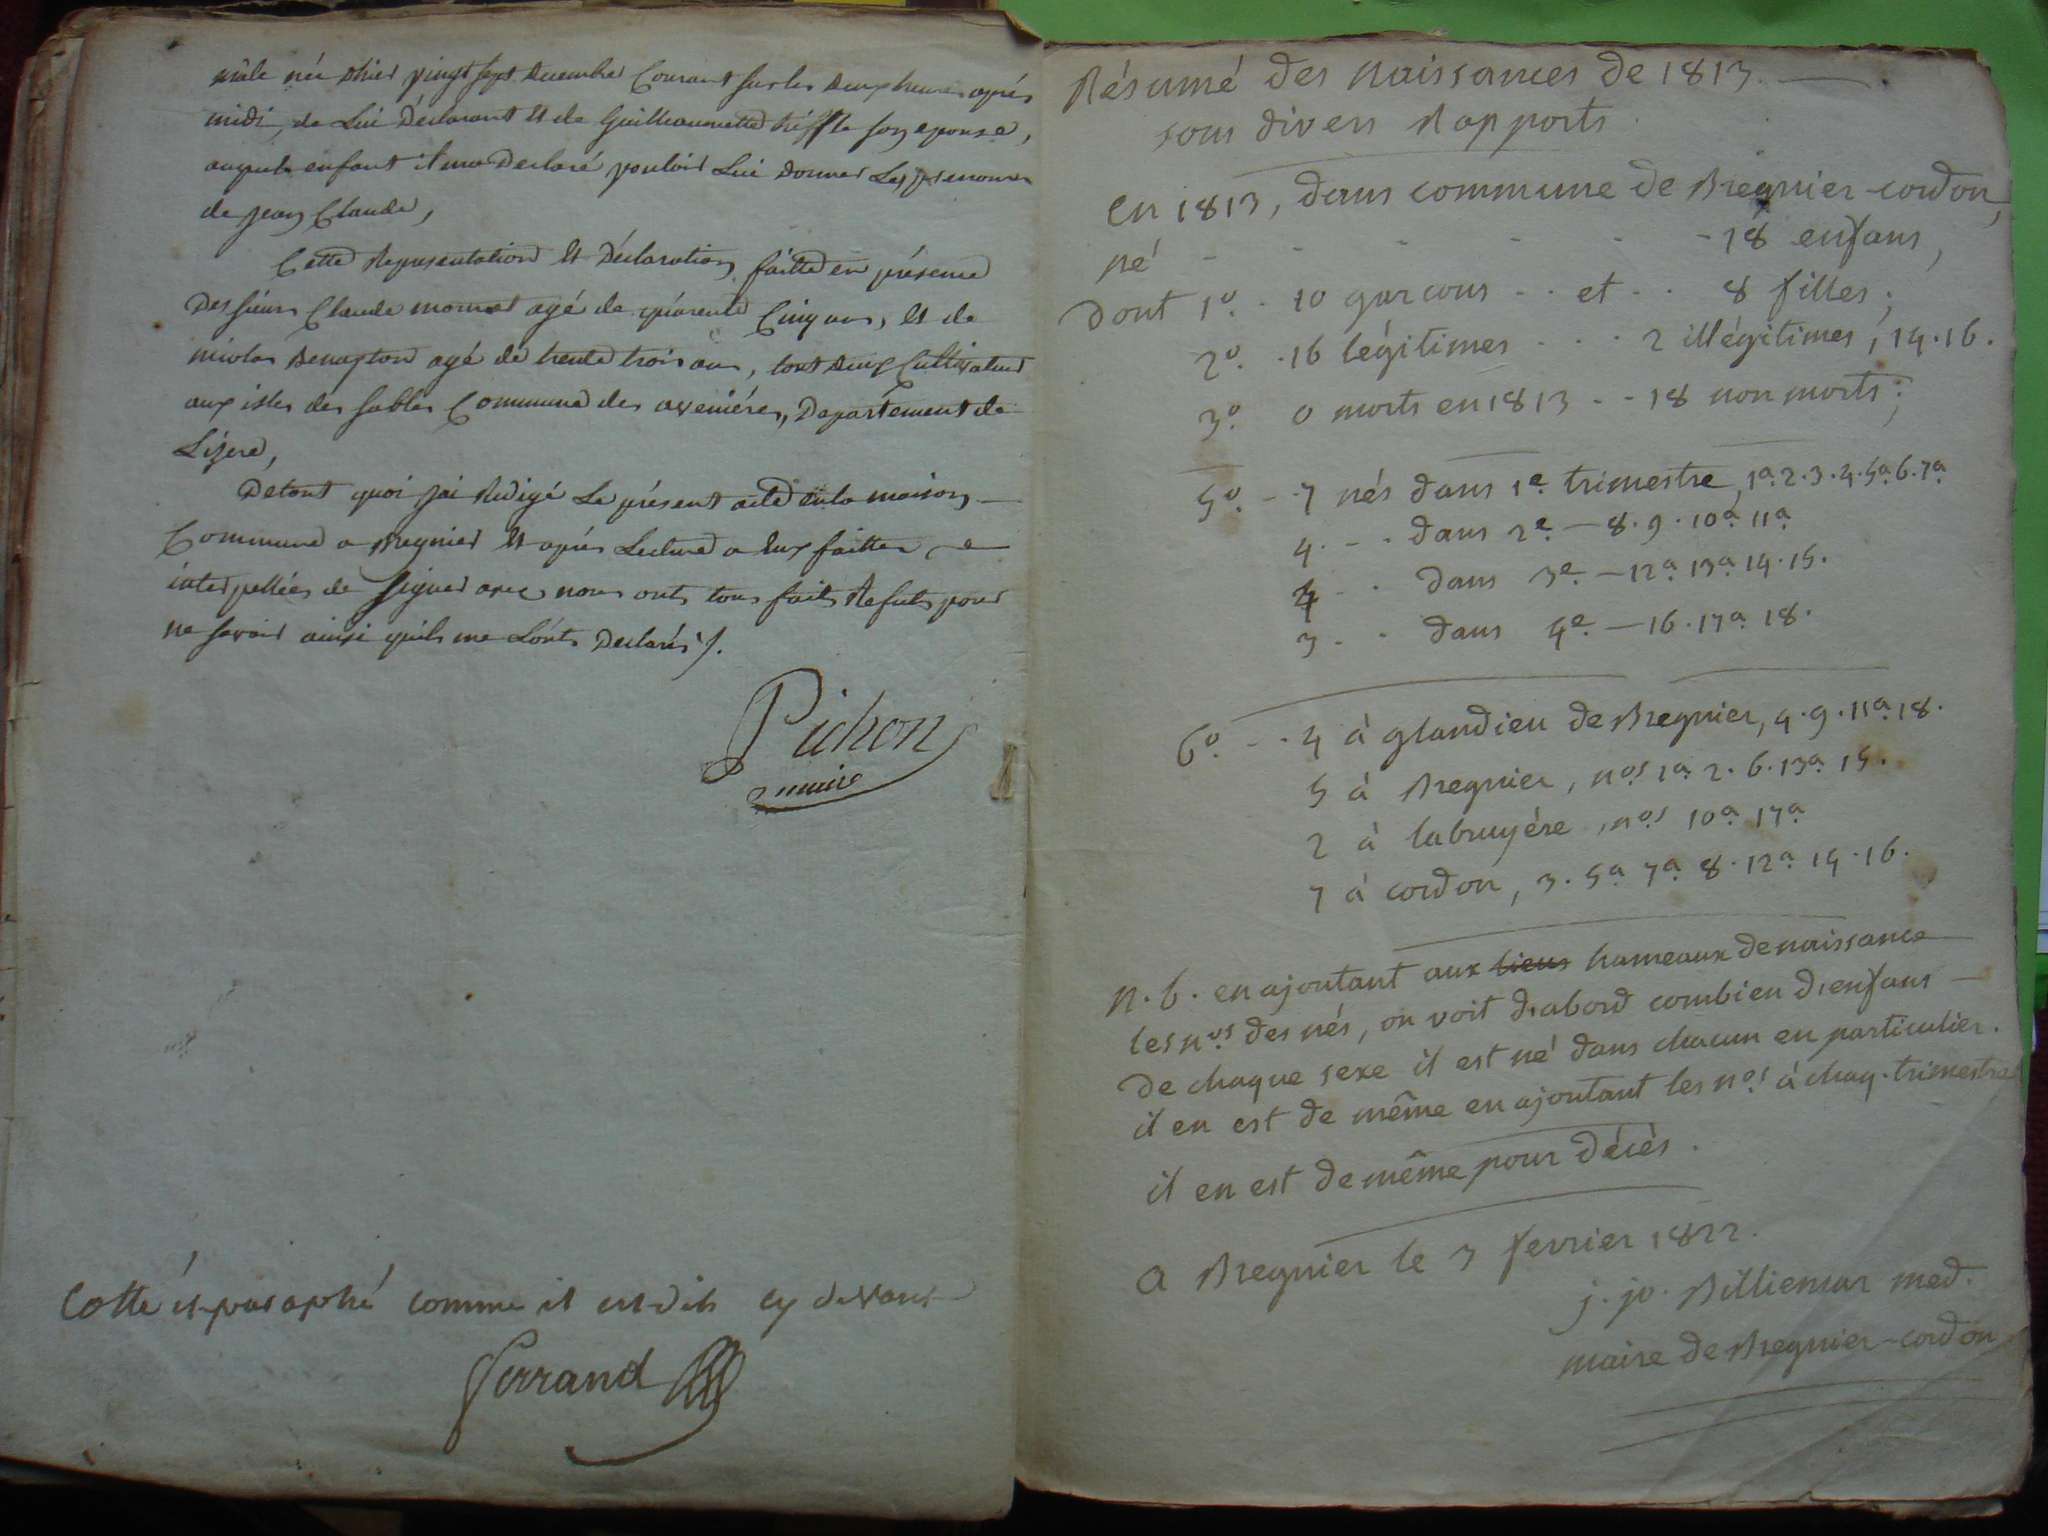 mâle née d'hier vingt sept decembre Courant sur les deux heures après
midi, de Lui Déclarant et de Guillaumette son epouse,
auquel enfant il ma Declaré vouloir Lui donner Les prenoms
de jean Claude,
Cette Representation et Déclaration faitte en présence
Des sieurs Claude agé de quarente Cinq ans, et de
nicolas agé de trente trois ans, tout deux Cultivateurs
aux isles des sables Commune des aveniéres, Département de
Lizere,
De tout quoi jai Redigé Le présent acte en la maison
Commune a Bregnier et après Lecture a eux faitte, e
interpellées de signer avec nous onts tous faits Refuts pour
ne savoir ainsi quils me Lonts Declarés ./.
Pichon
maire
Cotté et paraphé comme il est dit cy devant
Ferrand
Résumé des naissances de 1813.
sous divers Rapports.
en 1813, dans commune de Bregnier-cordon,
né - - - - - - 18 enfans,
Dont 1º. - 10 garcons - - et - - 8 filles;
2º. - 16 légitimes - - - 2 illégitimes, 14.16.
3º. 0 morts en 1813 - - 18 non morts;
5º. - - 7 nés dans 1e. trimestre, 1a. 2. 3. 4. 5a. 6. 7a.
4. - - dans 2e. — 8. 9. 10a. 11a.
4 - - dans 3e. — 12a. 13a. 14. 15.
3 - - dans 4e. — 16. 17a. 18.
6º. - - 4 à glandieu de Bregnier, 4. 9. 11a. 18.
5 à Bregnier, nos. 1a. 2. 6. 13a. 15.
2 à labruyére, nos. 10a. 17a.
7 à cordon, 3. 5a. 7a. 8. 12a. 14. 16.
n.b. en ajoutant aux lieux hameaux de naissance
les nos. des nés, on voit d'abord combien d'enfans
de chaque sexe il est né dans chacun en particulier.
il en est de même en ajoutant les nos. à chaq. trimestre
il en est de même pour décès.
a Bregnier le 3 fevrier 1822.
j. jo. Billiemar med.
maire de Bregnier-cordon